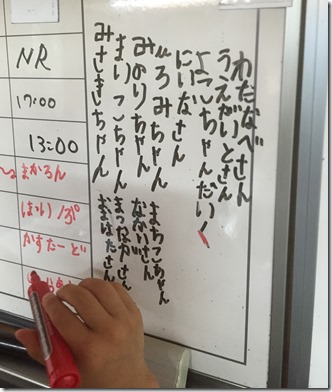 わたなべさん
うえがいとさん
ようこちゃんだい!
にいなさん
ひろみちゃん
みのりちゃん
まりこちゃん
みさきちゃん
まちこちゃん
ながいさん
まつながさん
おばたさん
NR
17:00
13:00
まかろん
かすたーど